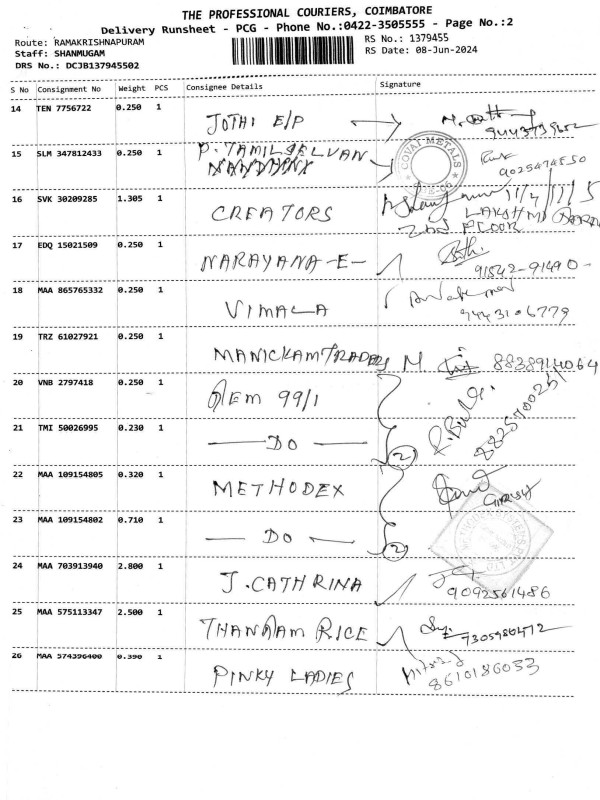 THE PROFESSIONAL COURIERS, COIMBATORE
Delivery Runsheet - PCG - Phone No.:0422-3505555 - Page No.:2
Route: RAMAKRISHNAPURAM
RS No.: 1379455
Staff: SHANMUGAM
RS Date: 08-Jun-2024
DRS No.: DCJB137945502
S No Consignment No Weight PCS Consignee Details Signature
14 TEN 7756722 0.250 1 JOTHI E/P
15 SLM 347812433 0.250 1 P. TAMILSELVAN
COVAI METALS
16 SVK 30209285 1.305 1 CREATORS
LAKSHMI
2nd FLOOR
17 EDQ 15021509 0.250 1 NARAYANA -E-
91542-91490-
18 MAA 865765332 0.250 1 VIMALA
9443106779
19 TRZ 61027921 0.250 1 MANICKAM TRADERS M. 8838914064
20 VNB 2797418 0.250 1 99/1
8825700251
21 TMI 50026995 0.230 1 — DO — (2)
22 MAA 109154805 0.320 1 METHODEX
GIRISH
23 MAA 109154802 0.710 1 — DO — (2)
24 MAA 703913940 2.800 1 J. CATHRINA
9092561486
25 MAA 575113347 2.500 1 RICE
26 MAA 574396400 0.390 1 PINKY LADIES
8610186033